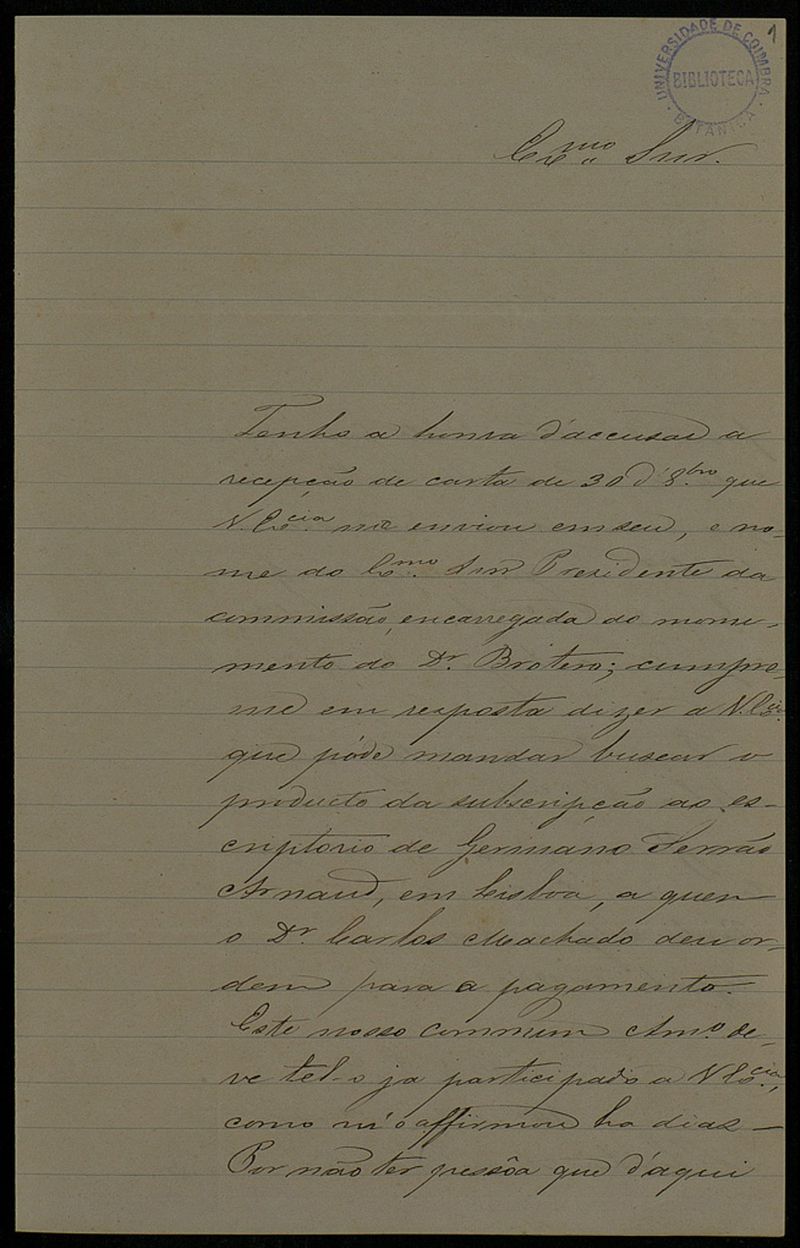 1
UNIVERSIDADE DE COIMBRA
BIBLIOTECA
BOTANICA
Ex.mo Snr.
Tenho a honra d'accusar a
recepção de carta de 30 d' 8.bro que
V. Ex.cia me enviou em seu, e no-
me do Ex.mo Snr Presidente da
commissão, encarregada do monu-
mento do Dr. Brotero; cumpre-
me em resposta dizer a V. Ex.cia
que póde mandar buscar o
producto da subscripção ao es-
criptorio de Germano Serrão
Arnaud, em Lisboa, a quem
o Dr. Carlos Machado deu or-
dem para o pagamento.
Este nosso commum Am.o de-
ve tel-o ja participado a V Ex.cia,
como m'o affirmou ha dias —
Por não ter pessôa que d'aqui